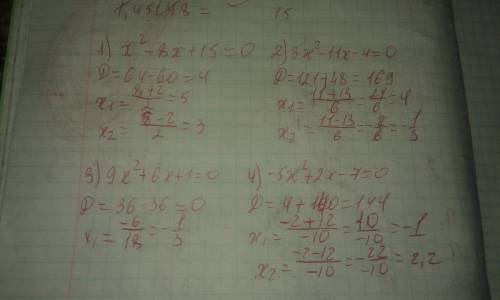 15
1) x² - 8x + 15 = 0
D = 64 - 60 = 4
x₁ = (8+2)/2 = 5
x₂ = (8-2)/2 = 3
2) 3x² - 11x - 4 = 0
D = 121 + 48 = 169
x₁ = (11+13)/6 = 24/6 = 4
x₂ = (11-13)/6 = -2/6 = -1/3
3) 9x² + 6x + 1 = 0
D = 36 - 36 = 0
x₁ = -6/18 = -1/3
4) -5x² + 2x - 7 = 0
D = 4 + 140 = 144
x₁ = (-2+12)/-10 = 10/-10 = -1
x₂ = (-2-12)/-10 = -22/-10 = 2,2